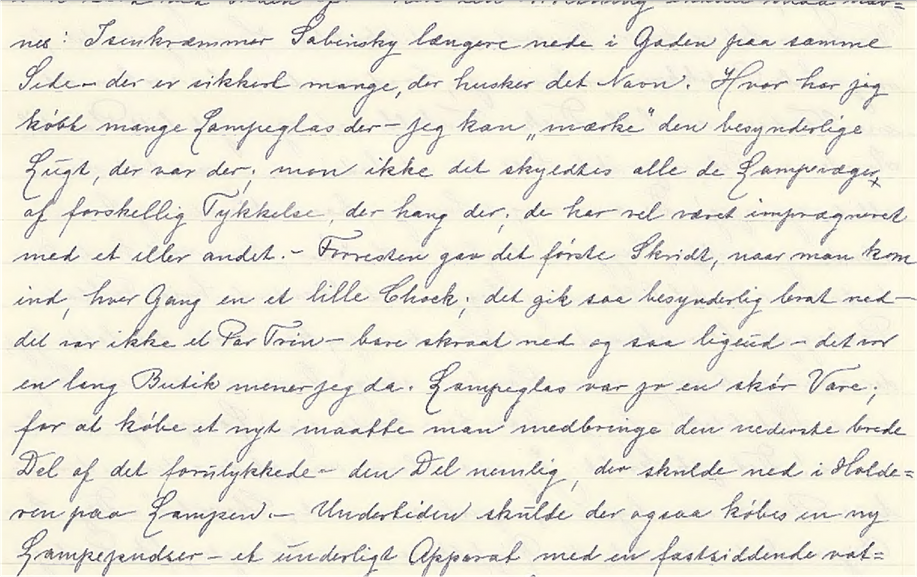 nes: Isenkræmmer Sabinsky længere nede i Gaden paa samme
Side – der er sikkert mange, der husker det Navn. Hvor har jeg
købt mange Lampeglas der – jeg kan „mærke“ den besynderlige
Lugt, der var der; mon ikke det skyldtes alle de Lampevæger
af forskellig Tykkelse, der hang der; de har vel været imprægneret
med et eller andet. – Forresten gav det første Skridt, naar man kom
ind, hver Gang en et lille Chock; det gik saa besynderlig brat ned –
det var ikke et Par Trin – bare skraat ned og saa ligeud – det var
en lang Butik mener jeg da. Lampeglas var jo en skør Vare;
for at købe et nyt maatte man medbringe den nederste brede
Del af det forulykkede – den Del nemlig, der skulde ned i Holde=
ren paa Lampen. – Undertiden skulde der ogsaa købes en ny
Lampepudser – et underligt Apparat med en fastsiddende vat=